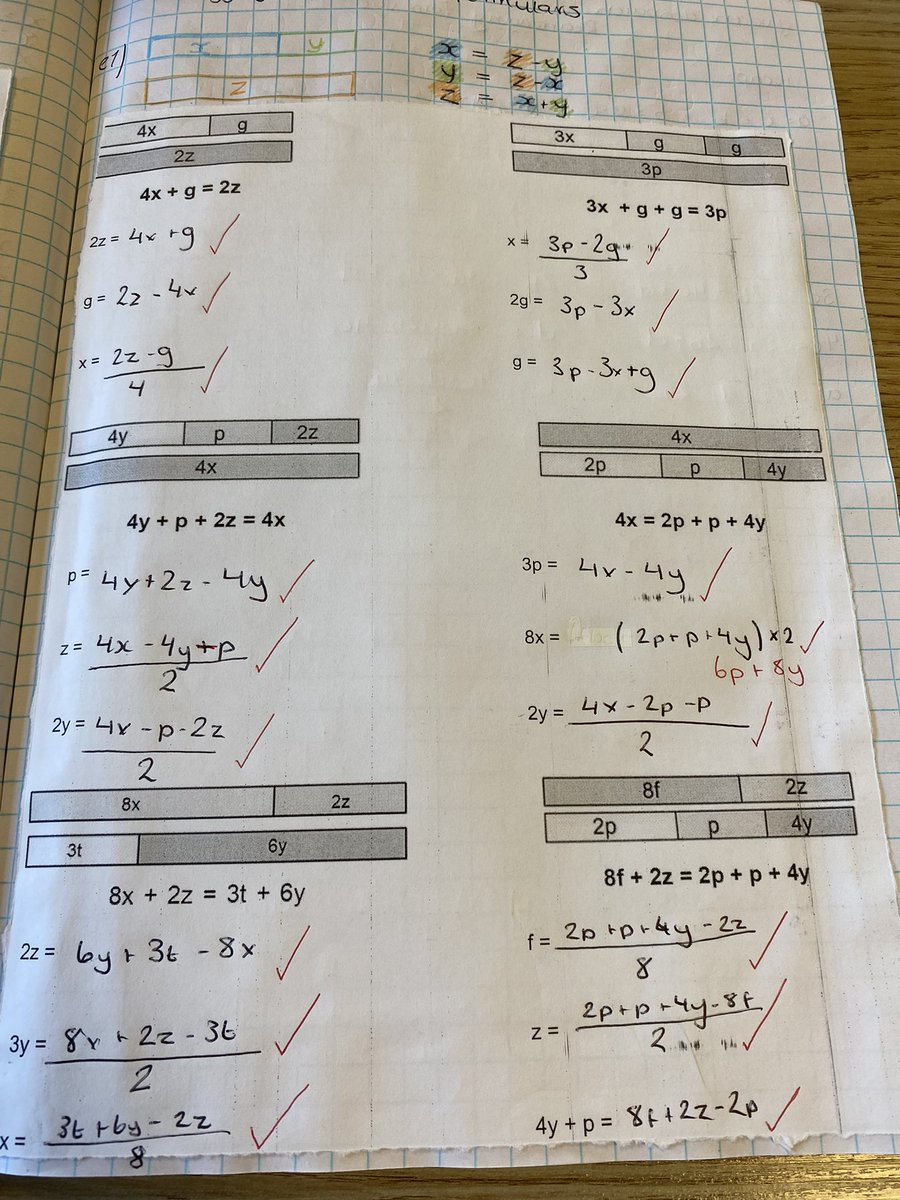 e1)
x y
z
x = z - y
y = z - x
z = x + y
4x g
2z
4x + g = 2z
2z = 4x + g
g = 2z - 4x
x = 2z - g
4
3x g g
3p
3x + g + g = 3p
x = 3p - 2g
3
2g = 3p - 3x
g = 3p - 3x + g
4y p 2z
4x
4y + p + 2z = 4x
p = 4y + 2z - 4y
z = 4x - 4y + p
2
2y = 4x - p - 2z
2
4x
2p p 4y
4x = 2p + p + 4y
3p = 4x - 4y
8x = (2p + p + 4y) × 2
6p + 8y
2y = 4x - 2p - p
2
8x 2z
3t 6y
8x + 2z = 3t + 6y
2z = 6y + 3t - 8x
3y = 8x + 2z - 3t
2
x = 3t + 6y - 2z
8
8f 2z
2p p 4y
8f + 2z = 2p + p + 4y
f = 2p + p + 4y - 2z
8
z = 2p + p + 4y - 8f
2
4y + p = 8f + 2z - 2p